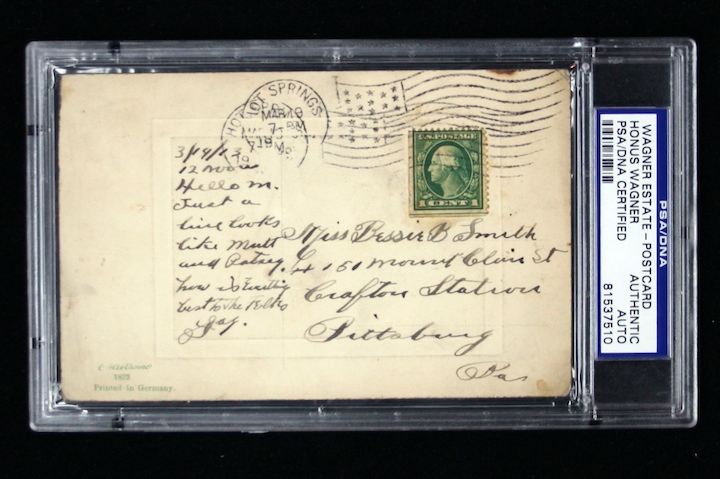 HOT SPRINGS
MAR 19
7 PM
U.S. POSTAGE
1 CENT 1
3/19/13
12 noon
Hello m.
Just a
line looks
like Mutt
and Patsey
how is Everything
best to the Folks
Jay.
Miss Bessie B Smith
151 Mount Olivis St
Crafton Station
Pittsburg
Pa
1822
Printed in Germany.
PSA/DNA
WAGNER ESTATE-POSTCARD
HONUS WAGNER AUTHENTIC
PSA/DNA CERTIFIED AUTO
81537510